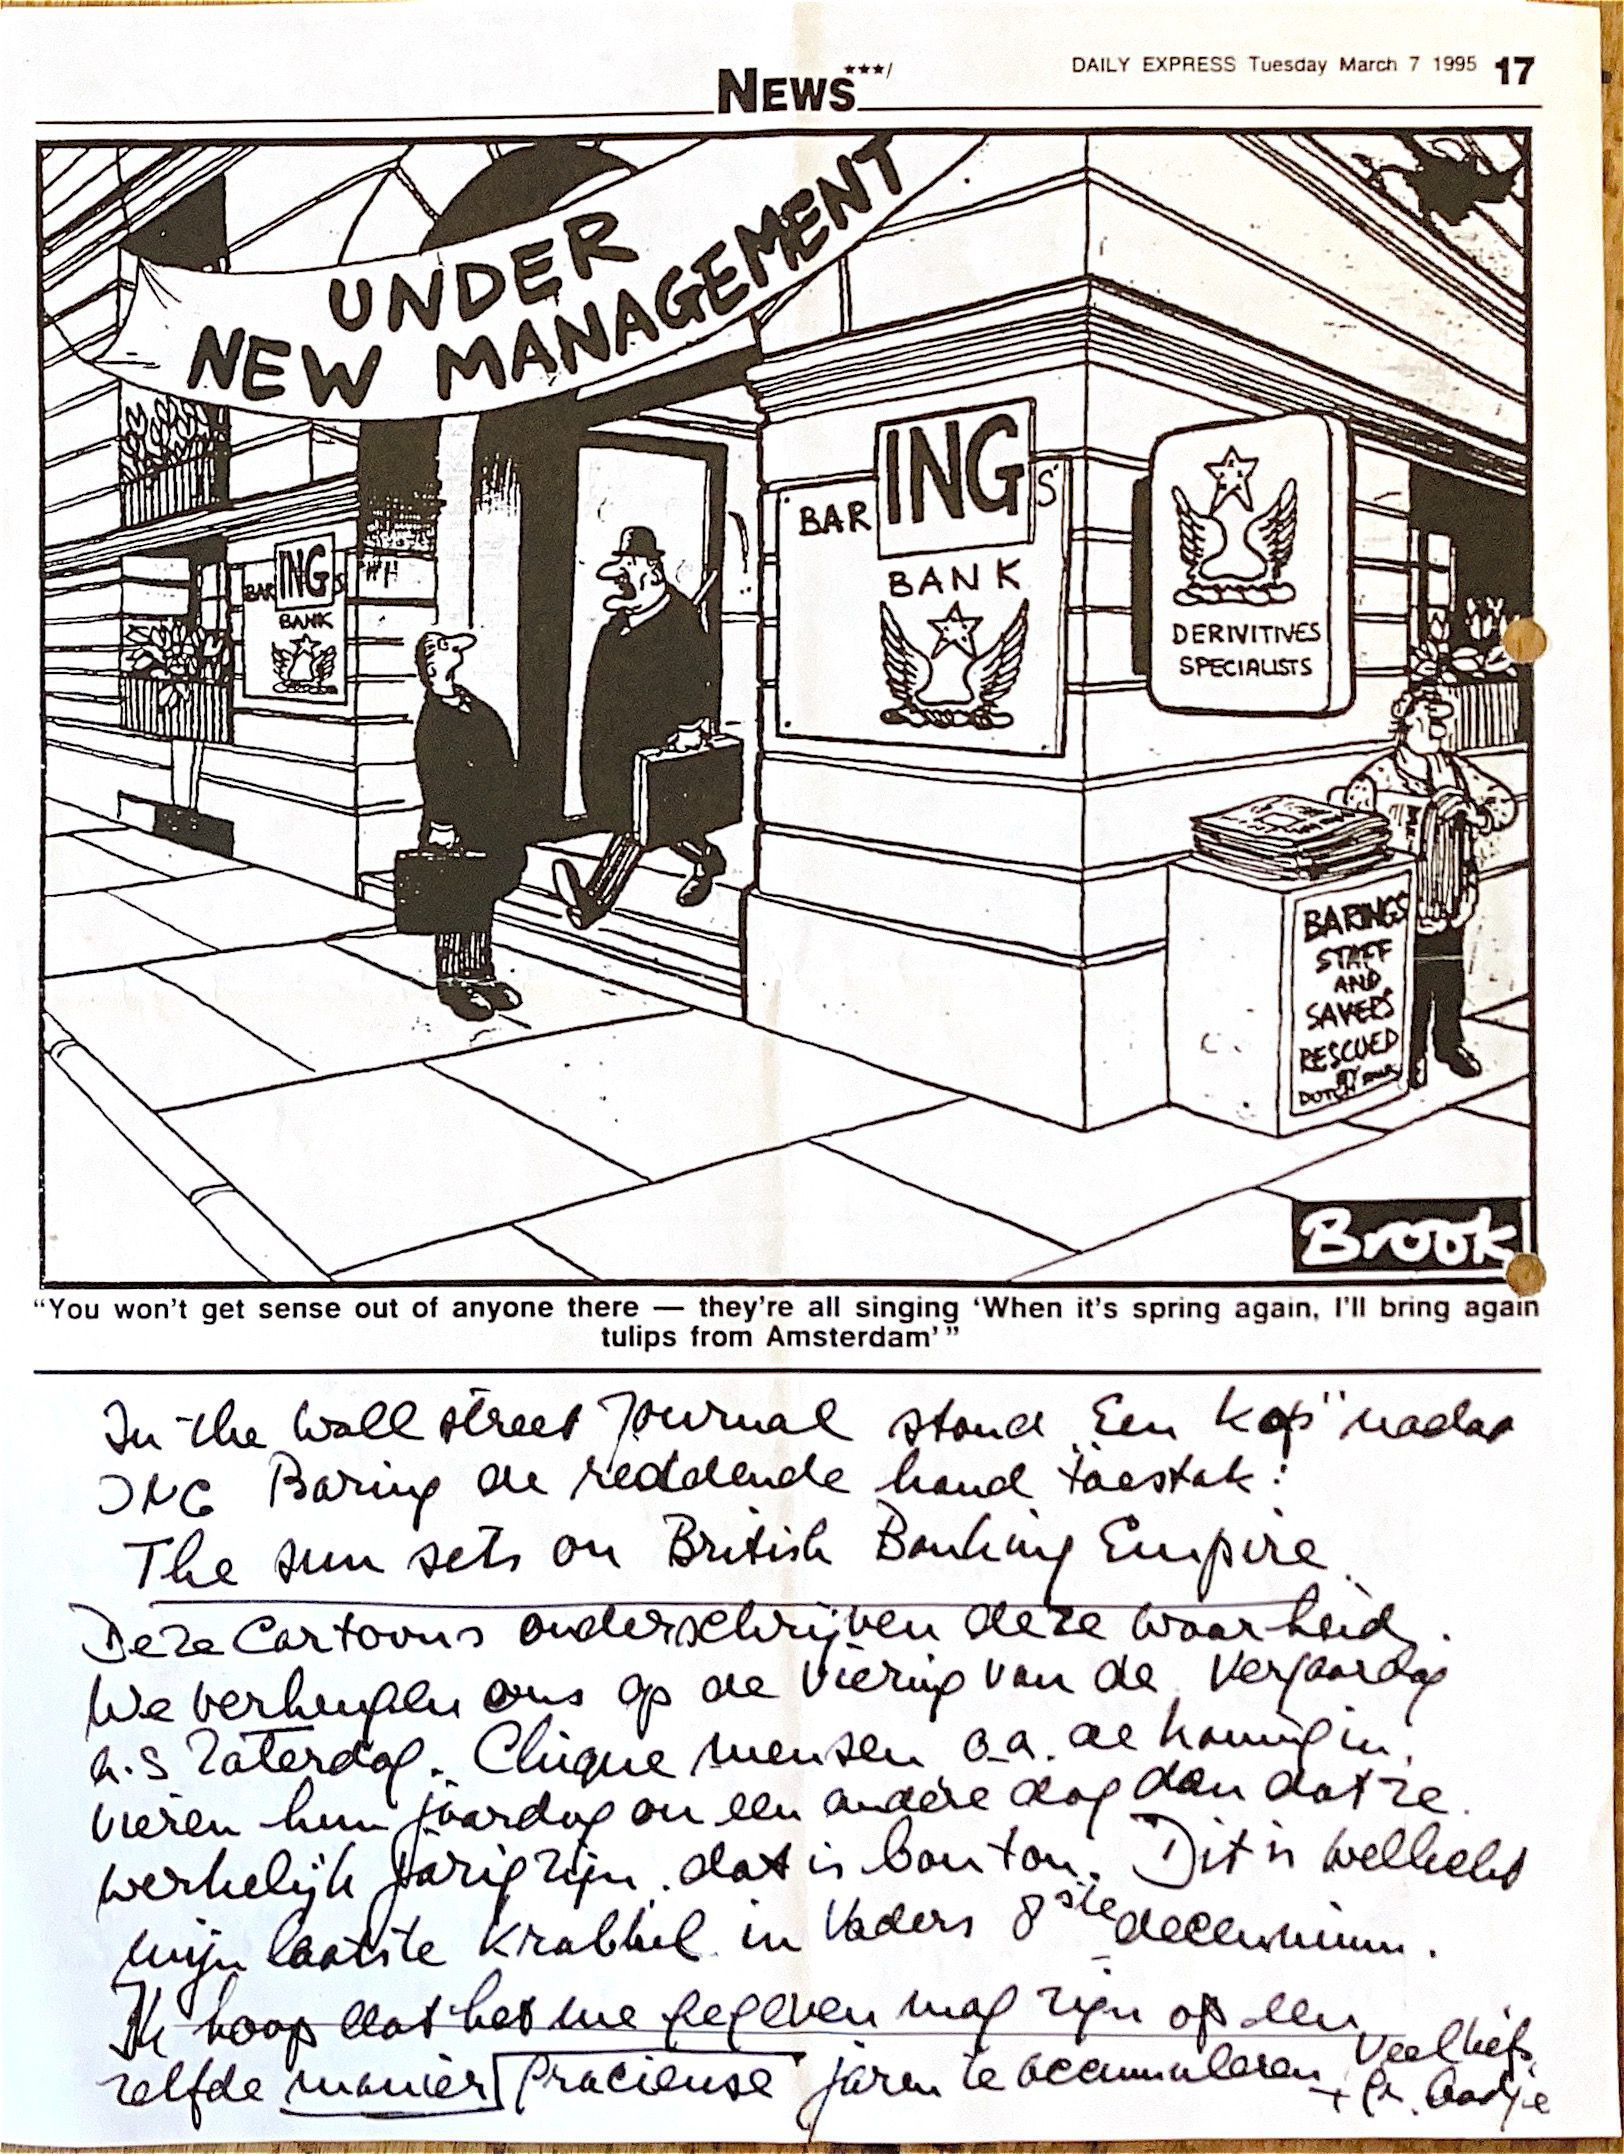 NEWS ***/
DAILY EXPRESS Tuesday March 7 1995 17
UNDER
NEW MANAGEMENT
BAR ING S'
BANK
BAR ING S
BANK
DERIVITIVES
SPECIALISTS
BARINGS
STAFF
AND
SAVERS
RESCUED
BY
DUTCH
Brook
"You won't get sense out of anyone there — they're all singing 'When it's spring again, I'll bring again
tulips from Amsterdam' "
In the Wall street Journal stond "Een kop" nadat
ING Baring de reddende hand toestak:
The sun sets on British Banking Empire.
Deze Cartoons onderschrijven deze waarheid.
We verheugen ons op de viering van de Verjaardag
a.s Zaterdag. Chique mensen o.a. de koningin,
vieren hun jaardag on een andere dag dan dat ze
werkelijk jarig zijn, dat is bon ton. Dit is wellicht
mijn laatste krabbel in Vaders 8ste decennium.
Ik hoop dat het me gegeven mag zijn op een
zelfde manier Gracieuse jaren te accumuleren
Veel liefs
+ gr.